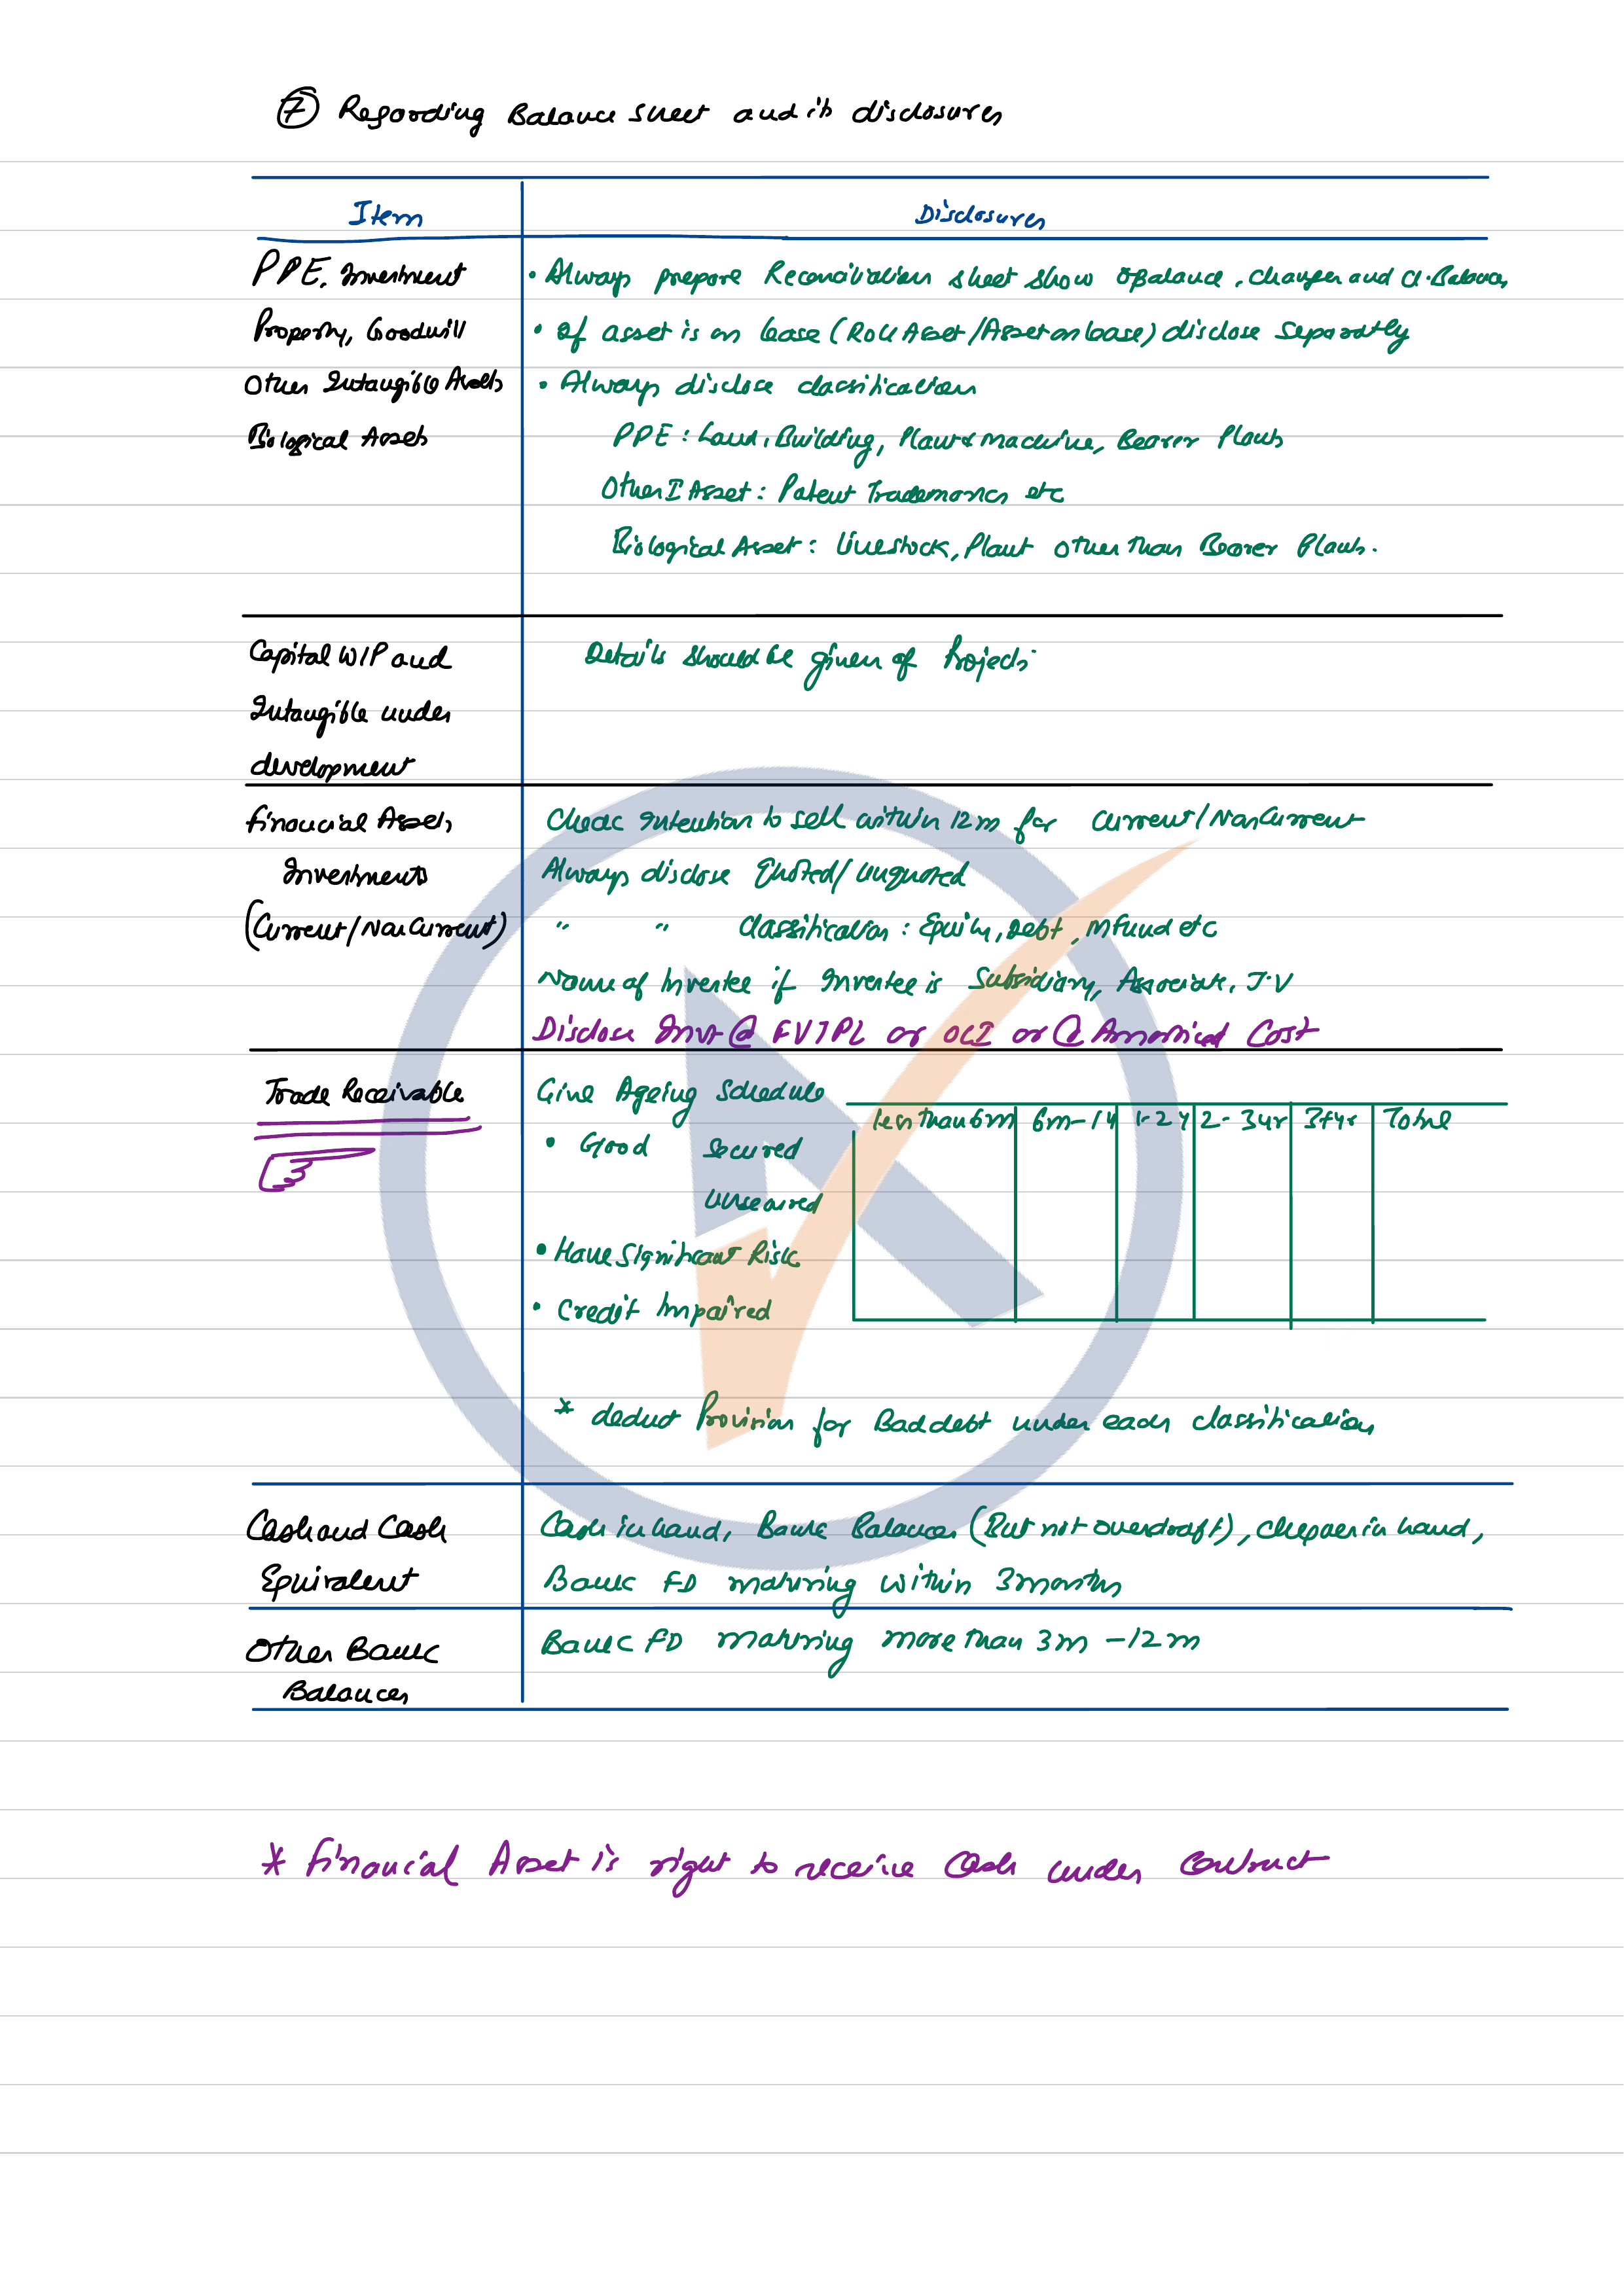 ⑦ Regarding Balance sheet and its disclosures
Item Disclosures
PPE, Investment
Property, Goodwill
Other Intangible Assets
Biological Assets
• Always prepare Reconciliation sheet show opbalance, changes and cl. Balances
• If asset is on lease (ROU Asset/Asset on lease) disclose separately
• Always disclose classification
PPE : Land, Building, Plant & machine, Bearer Plants
Other I Asset : Patent Trademarks etc
Biological Asset : livestock, Plant other than Bearer Plants.
Capital WIP and
Intangible under
development
Details should be given of Projects
Financial Assets
Investments
(Current/NonCurrent)
Check intention to sell within 12m for current/NonCurrent
Always disclose Quoted/unquoted
" " classification : Equity, Debt, MFund etc
Name of Investee if Investee is Subsidiary, Associate, J.V
Disclose Invt @ FVTPL or OCI or @ Amortised Cost
Trade Receivable
Give Ageing Schedule
less than 6m 6m-1y 1-2y 2-3yr 3+yr Total
• Good Secured
Unsecured
• Have Significant Risk
• Credit Impaired
* deduct Provision for Bad debt under each classification
Cash and Cash
Equivalent
Cash in hand, Bank Balances (But not overdraft), cheques in hand,
Bank FD maturing within 3 months
Other Bank
Balances
Bank FD maturing more than 3m - 12m
* Financial Asset is right to receive Cash under Contract